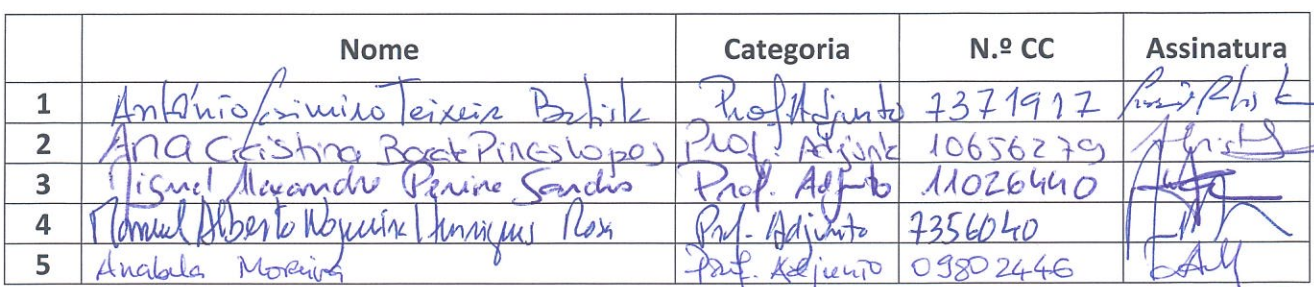 Nome Categoria N.º CC Assinatura
1 António Casimiro Teixeira Batista Prof Adjunto 7371917
2 Ana Cristina Pires Lopes Prof. Adjunta 10656279
3 Miguel Alexandre Sandro Prof. Adjunto 11026440
4 Manuel Alberto Nogueira Henriques Rosa Prof. Adjunto 7356040
5 Anabela Moreira Prof. Adjunto 09802446